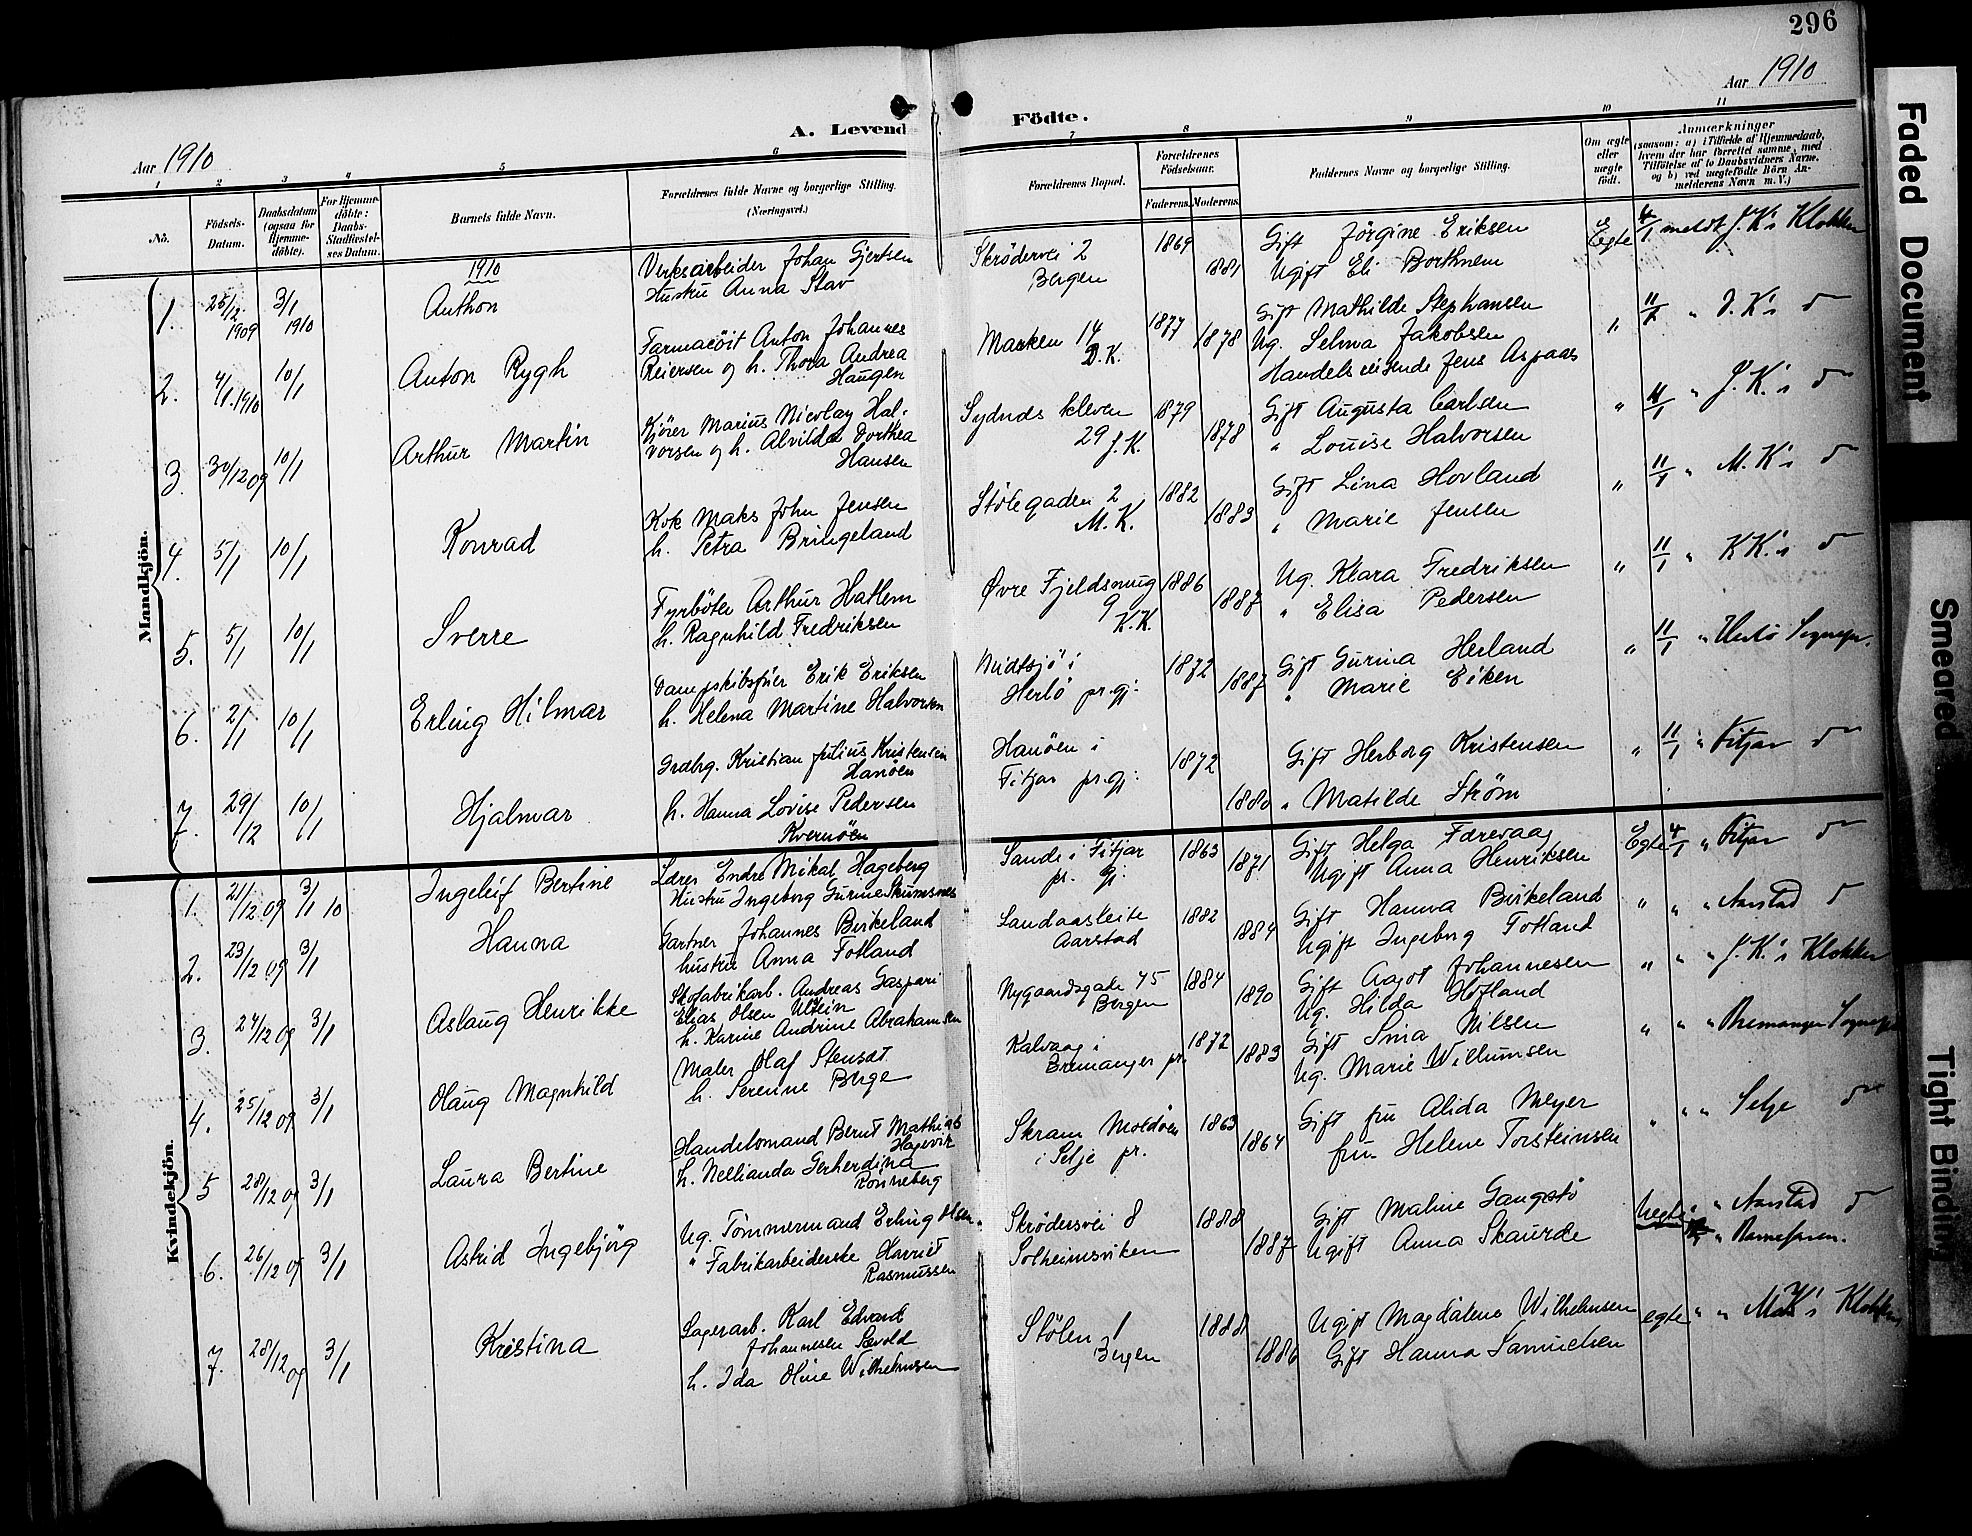 296
Aar 1910
Aar 1910
A. Levend Födte.
1 2 3 4 5 6 7 8 9 10 11
No. Födsels-Datum. Daabsdatum (ogsaa for Hjemme-döbte). For Hjemme-döbte: Daabs-Stadfæstel-ses Datum. Barnets fulde Navn. Forældrenes fulde Navne og borgerlige Stilling. (Næringsvei.) Forældrenes Bopæl. Forældrenes Födselsaar. Faderens. Moderens. Faddernes Navne og borgerlige Stilling. Om ægte eller uægte födt. Anmærkninger (saasom: a) i Tilfælde af Hjemmedaab, hvem der har forrettet samme, med Tilföielse af to Daabsvidners Navne, og b) ved uægtefödte Börn An-melderens Navn m. V.)
Mandkjön.
1910
1. 25/12 1909 3/1 1910 Anthon Verksarbeider Johan Gjertsen
Hustru Anna Stav
Skrödervei 2 Bergen 1869 1881 Gift Jörgine Eriksen
Ugift Eli Borthnem
Egte 4/1 meldt J.K's Klokker
2. 4/1 1910 10/1 Anton Rygh Farmacöit Anton Johannes
Reiersen og h. Thora Andrea
Haugen
Marken 14 D.K. 1877 1878 Gift Mathilde Stephansen
Ug. Selma Jakobsen
Handelsreisende Jens Aspaas
" 11/1 " D.K's do
3. 30/12 09 10/1 Arthur Martin Kjörer Marius Nicolay Hal-
vorsen og h. Alvilde Dorthea
Hansen
Sydnæskleven 29 J.K. 1879 1878 Gift Augusta Carlsen
" Louise Halvorsen
" 11/1 " J.K's do
4. 5/1 10/1 Konrad Kok Maks John Jensen
h. Petra Bringeland
Stölegaden 2 M.K. 1882 1883 Gift Lina Hovland
" Marie Jensen
" 11/1 " M.K's do
5. 5/1 10/1 Sverre Fyrböter Arthur Hatlem
h. Ragnhild Fredriksen
Øvre Fjeldsmug 9 K.K. 1886 1887 Ug. Klara Fredriksen
" Elisa Pedersen
" 11/1 " K.K.'s do
6. 2/1 10/1 Erling Hilmar Dampskibsförer Erik Eriksen
h. Helena Martine Halvorsen
Midtsjö i Herlö pr.gj. 1872 1887 Gift Gurina Herland
" Marie Eiken
" 11/1 " Herlö Sognepr.
7. 29/12 10/1 Hjalmar Grdbrg. Kristian Julius Kristensen
Hanöen
h. Hanna Lovise Pedersen
Kvernöen
Hanöen i Fitjar pr.gj. 1872 1880 Gift Herborg Kristensen
" Matilde Strøm
" 11/1 " Fitjar do
Kvindekjön.
1. 21/12 09 3/1 10 Ingeleif Bertine Lærer Endre Mikal Hageberg
Hustru Ingeborg Gurine Skumsnes
Sande i Fitjar pr. gj. 1863 1871 Gift Helga Færevaag
Ugift Anna Henriksen
Egte 4/1 " Fitjar do
2. 23/12 09 3/1 Hanna Gartner Johannes Birkeland
hustru Anna Fotland
Landaasleite Aarstad 1882 1884 Gift Hanna Birkeland
Ugift Ingeborg Fotland
" " " Aarstad do
3. 27/12 09 3/1 Aslaug Henrikke Skofabrikarb. Andreas Gaspari
Elias Olsen Utvein
h. Karine Andrine Abrahamsen
Nygaardsgade 45 Bergen 1884 1890 Gift Aagot Johannesen
Ug. Hilda Hofland
" " " J.K.'s Klokker
4. 25/12 09 3/1 Olaug Magnhild Maler Olaf Stensæt
h. Serenne Berge
Kalvaag i Bremanger pr. 1872 1883 Gift Sina Nilsen
Ug. Marie Willumsen
" " " Bremanger Sognepr
5 28/12 09 3/1 Laura Bertine Handelsmand Bernt Mathias
Hagevik
h. Nellianda Gerherdina
Rönneberg
Skram Moldöen i Selje pr. 1863 1864 Gift fru Alida Meyer
fru Helene Torsteinsen
" " " Selje do
6. 26/12 09 3/1 Astrid Ingebjörg Ug. Tömmermand Erling Olsen
" Fabrikarbeiderske Harriet
Rasmussen
Skrödersvei 8 Solheimsviken 1888 1887 Gift Maline Gangstö
Ugift Anna Skaurde
Uegte " " Aarstad do
" Barnefaren.
7. 28/12 09 3/1 Kristina Lagerarb. Karl Edvard
Johannesen Sevold
h. Ida Oline Wilhelmsen
Stölen 1 Bergen 1888 1886 Ugift Magdalena Wilhelmsen
Gift Hanna Samuelsen
egte " " M.K's Klokker
Faded Document
Smeared
Tight Binding